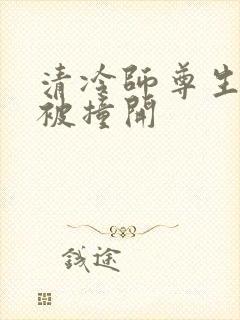 清冷師尊生
被撞開
錢途